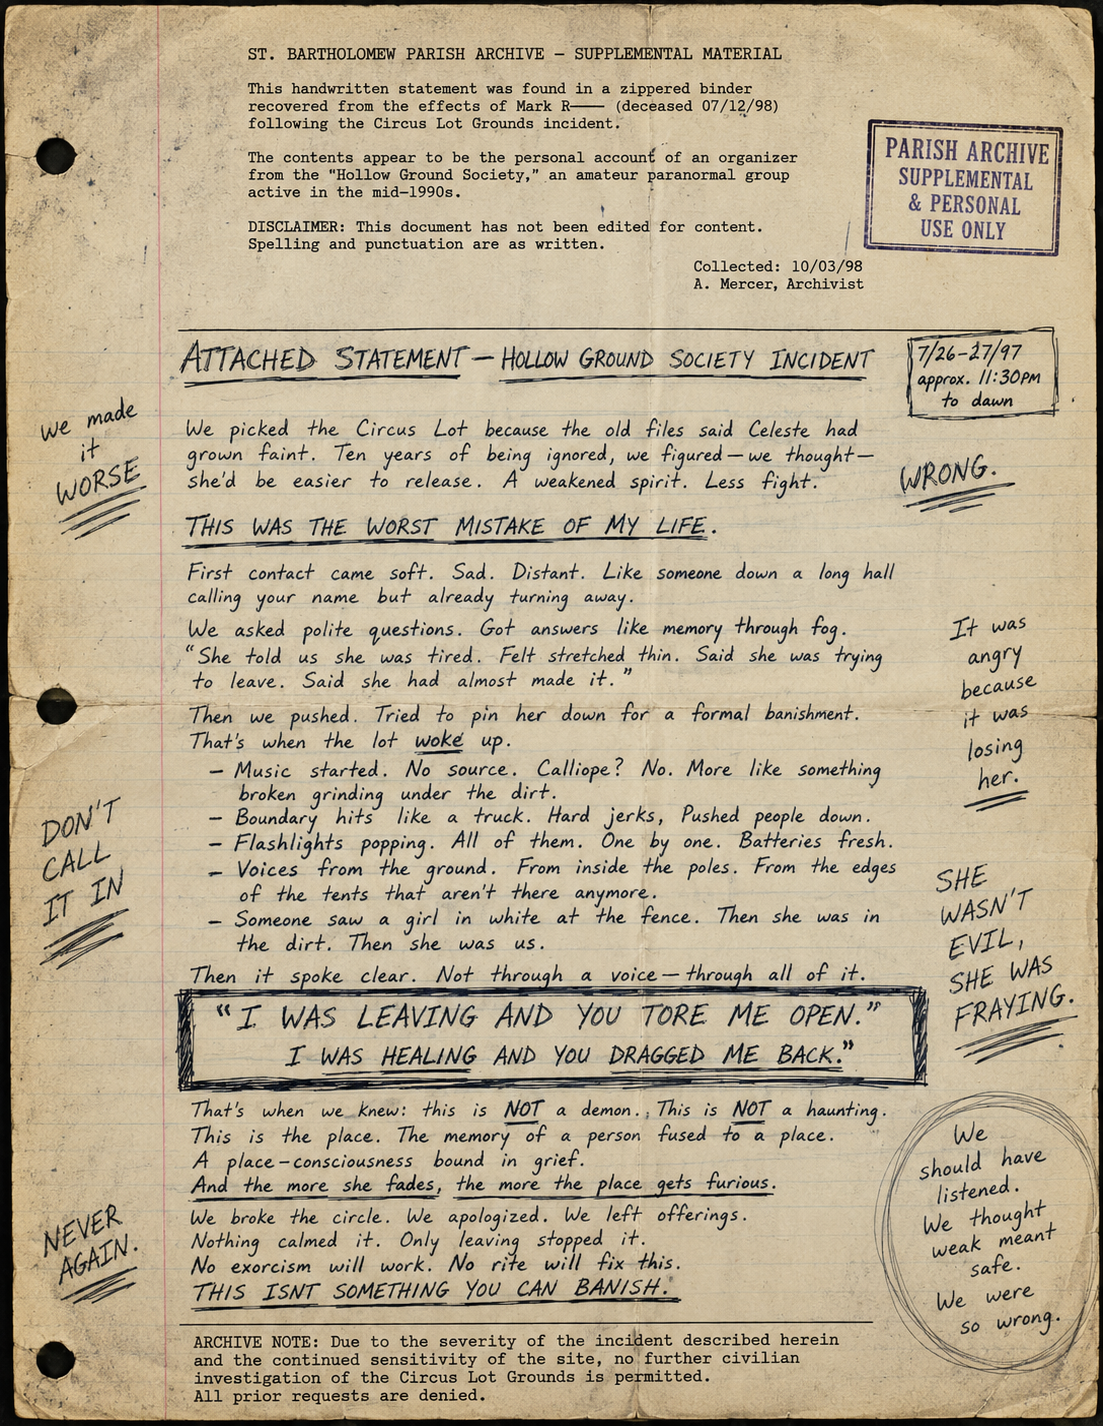 ST. BARTHOLOMEW PARISH ARCHIVE – SUPPLEMENTAL MATERIAL
This handwritten statement was found in a zippered binder
recovered from the effects of Mark R—— (deceased 07/12/98)
following the Circus Lot Grounds incident.
The contents appear to be the personal account of an organizer
from the "Hollow Ground Society," an amateur paranormal group
active in the mid-1990s.
DISCLAIMER: This document has not been edited for content.
Spelling and punctuation are as written.
Collected: 10/03/98
A. Mercer, Archivist
PARISH ARCHIVE
SUPPLEMENTAL
& PERSONAL
USE ONLY
ATTACHED STATEMENT — HOLLOW GROUND SOCIETY INCIDENT
7/26-27/97
approx. 11:30PM
to dawn
We picked the Circus Lot because the old files said Celeste had
grown faint. Ten years of being ignored, we figured — we thought —
she'd be easier to release. A weakened spirit. Less fight.
we made
it
WORSE
WRONG.
THIS WAS THE WORST MISTAKE OF MY LIFE.
First contact came soft. Sad. Distant. Like someone down a long hall
calling your name but already turning away.
We asked polite questions. Got answers like memory through fog.
"She told us she was tired. Felt stretched thin. Said she was trying
to leave. Said she had almost made it."
It was
angry
because
it was
losing
her.
Then we pushed. Tried to pin her down for a formal banishment.
That's when the lot woke up.
— Music started. No source. Calliope? No. More like something
broken grinding under the dirt.
— Boundary hits like a truck. Hard jerks, Pushed people down.
— Flashlights popping. All of them. One by one. Batteries fresh.
— Voices from the ground. From inside the poles. From the edges
of the tents that aren't there anymore.
— Someone saw a girl in white at the fence. Then she was in
the dirt. Then she was us.
DON'T
CALL
IT IN
SHE
WASN'T
EVIL,
SHE WAS
FRAYING.
Then it spoke clear. Not through a voice — through all of it.
"I WAS LEAVING AND YOU TORE ME OPEN."
I WAS HEALING AND YOU DRAGGED ME BACK."
That's when we knew: this is NOT a demon. This is NOT a haunting.
This is the place. The memory of a person fused to a place.
A place-consciousness bound in grief.
And the more she fades, the more the place gets furious.
We broke the circle. We apologized. We left offerings.
Nothing calmed it. Only leaving stopped it.
No exorcism will work. No rite will fix this.
THIS ISNT SOMETHING YOU CAN BANISH.
NEVER
AGAIN.
We
should have
listened.
We thought
weak meant
safe.
We were
so wrong.
ARCHIVE NOTE: Due to the severity of the incident described herein
and the continued sensitivity of the site, no further civilian
investigation of the Circus Lot Grounds is permitted.
All prior requests are denied.